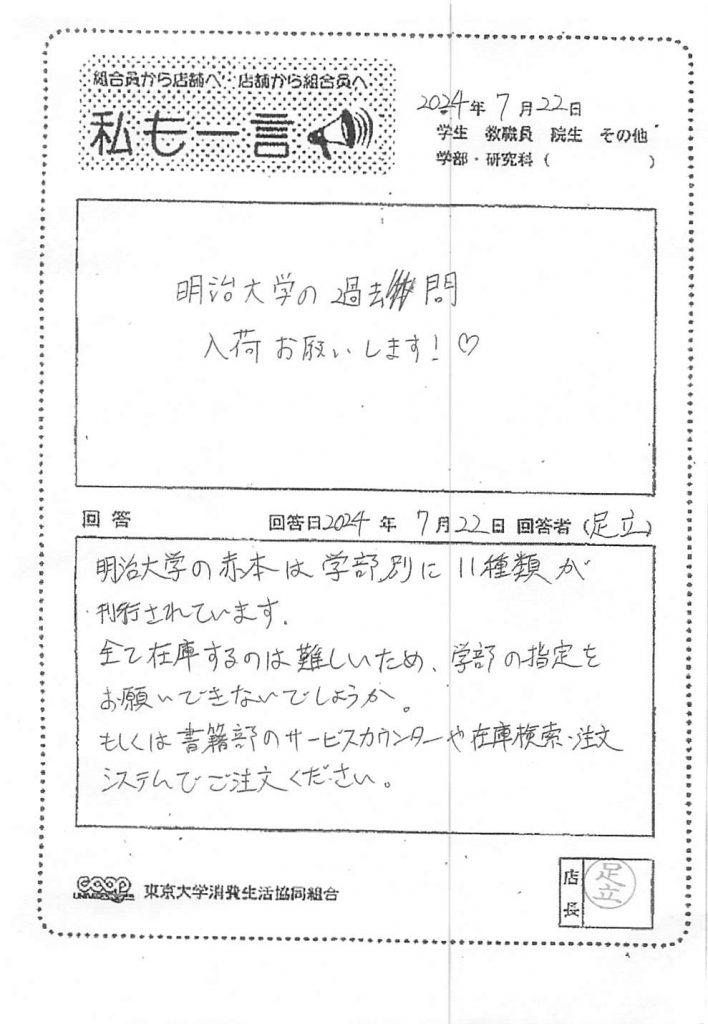 組合員から店舗へ・店舗から組合員へ
私も一言
2024年7月22日
学生 教職員 院生 その他
学部・研究科( )
明治大学の過去問
入荷お願いします!♡
回答 回答日2024年7月22日 回答者(足立)
明治大学の赤本は学部別に11種類が
刊行されています.
全て在庫するのは難しいため、学部の指定を
お願いできないでしょうか。
もしくは書籍部のサービスカウンターや在庫検索・注文
システムでご注文ください。
coop
UNIV
東京大学消費生活協同組合
店長
足立